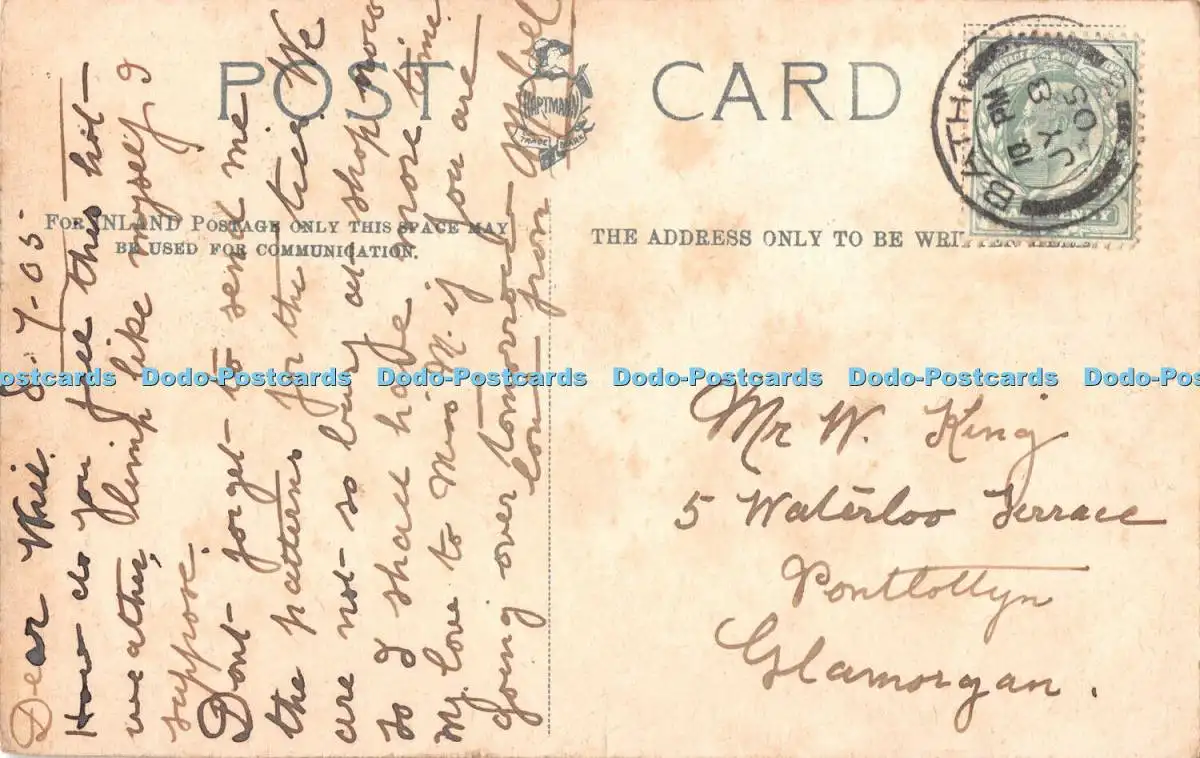 POST CARD
HARTMANN
TRADE MARK
FOR INLAND POSTAGE ONLY THIS SPACE MAY
BE USED FOR COMMUNICATION.
THE ADDRESS ONLY TO BE WRITTEN HERE.
BATH
10 PM
JY 8
05
Dear Will. 8-7-05-
How do you feel this hot-
weather, limp like myself I
suppose.
Dont- forget- to send me
the patterns for the ties. We
are not- so busy at- shop now
so I shall have more time
My love to Miss M. if you are
going over tomorrow
love from Mabel
Mr W. King
5 Waterloo Terrace
Pontlottyn
Glamorgan.
Dodo-Postcards Dodo-Postcards Dodo-Postcards Dodo-Postcards Dodo-Postcards